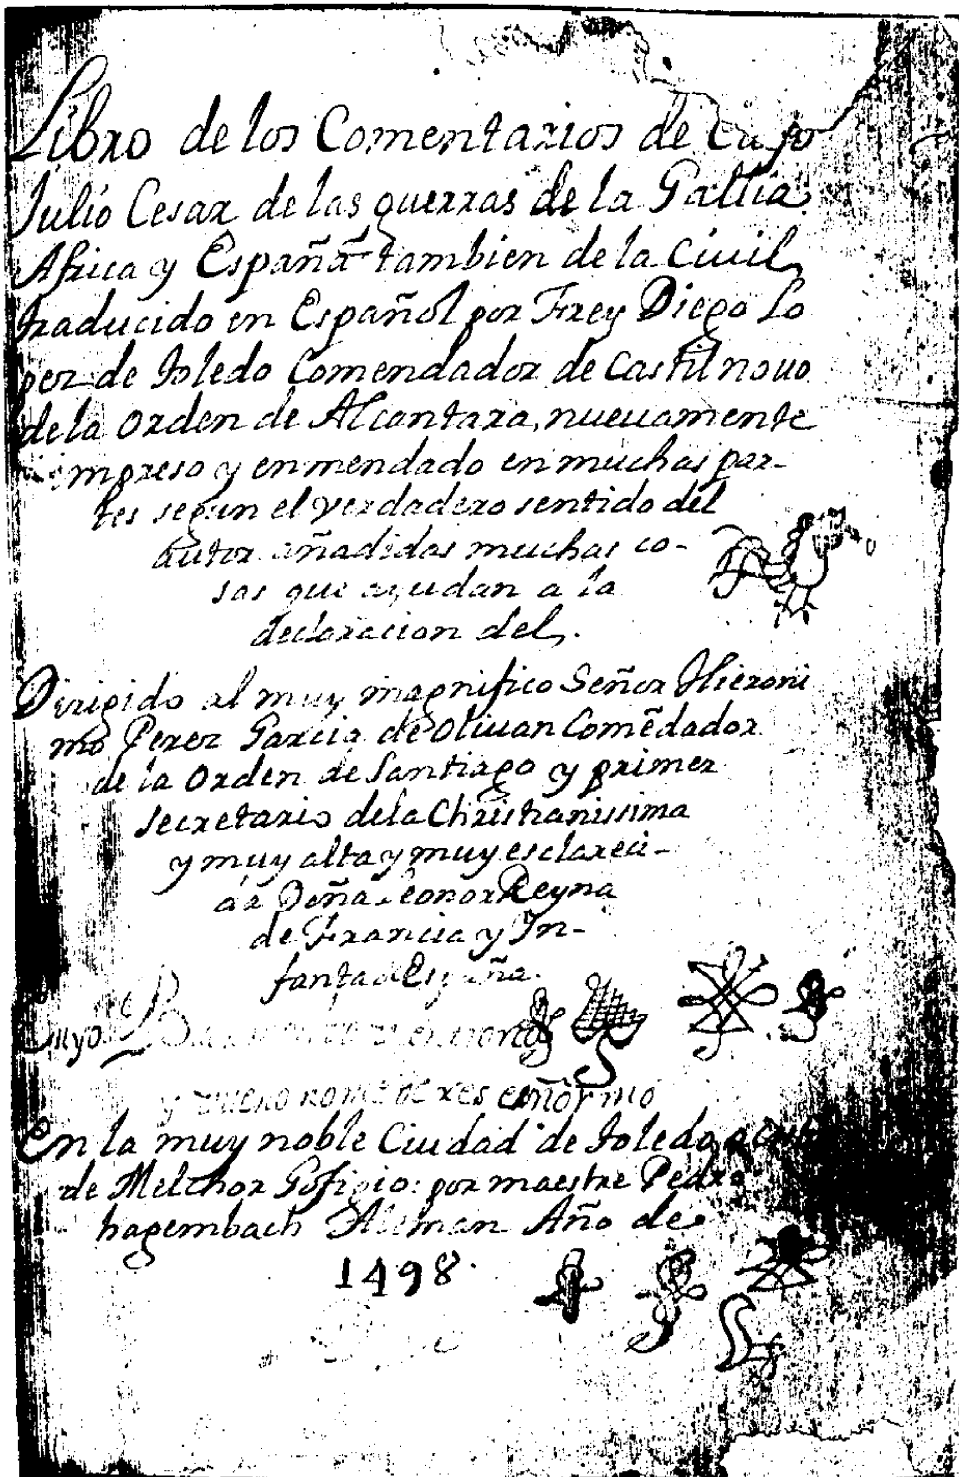 Libro de los Comentarios de Cayo
Julio Cesar de las guerras de la Gallia
Africa y España tambien de la Civil,
traducido en Español por Frey Diego Lo
pez de Toledo Comendador de Castilnouo
de la Orden de Alcantara, nueuamente
impreso y enmendado en muchas par-
tes segun el verdadero sentido del
autor añadidas muchas co-
sas que ayudan a la
declaracion del.
Dirigido al muy magnifico Señor Hieroni
mo Perez Garcia de Oliuan Comẽdador
de la Orden de Santiago y primer
secretario de la Christianissima
y muy alta y muy esclareci-
Doña Leonor Reyna
de Francia y In-
fanta de España.
Cuyo
y bueno
En la muy noble Ciudad de Toledo
de Melchor por maestre Pedro
hagembach Aleman Año de
1498.